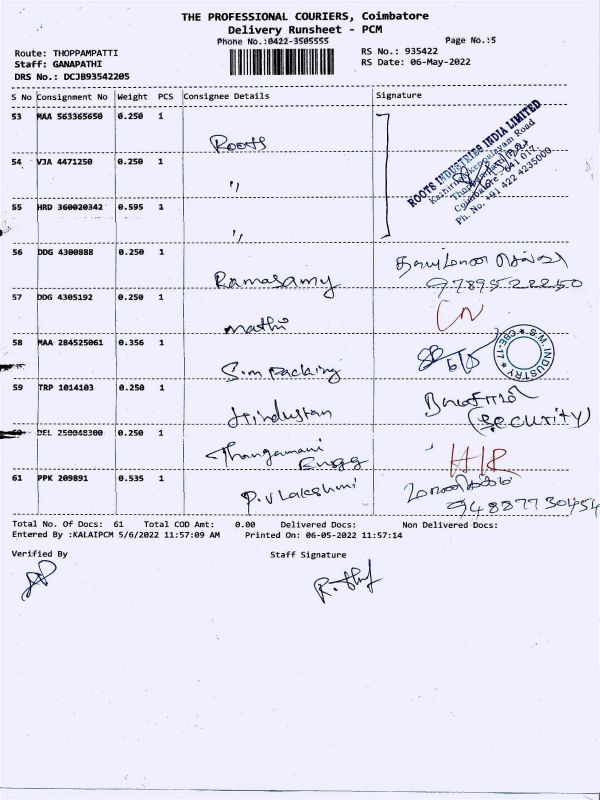 THE PROFESSIONAL COURIERS, Coimbatore
Delivery Runsheet - PCM
Phone No.:0422-3505555 Page No.:5
Route: THOPPAMPATTI RS No.: 935422
Staff: GANAPATHI RS Date: 06-May-2022
DRS No.: DCJB93542205
S No Consignment No Weight PCS Consignee Details Signature
53 MAA 563365650 0.250 1
Roots
54 VJA 4471250 0.250 1
"
55 HRD 360020342 0.595 1
"
ROOTS INDUSTRIES INDIA LIMITED
Coimbatore - 641 017.
Ph. No. +91 422 4235000
56 DDG 4300888 0.250 1
Ramasamy 9789522250
57 DDG 4305192 0.250 1
Mathi
58 MAA 284525061 0.356 1
S.m Packing
S.W. INDUSTRY * CBE-17 *
59 TRP 1014103 0.250 1
Hindustan (Security)
60 DEL 250048300 0.250 1
Thangamani
Engg
61 PPK 209891 0.535 1
P.V Lakshmi 94887730454
Total No. Of Docs: 61 Total COD Amt: 0.00 Delivered Docs: Non Delivered Docs:
Entered By :KALAIPCM 5/6/2022 11:57:09 AM Printed On: 06-05-2022 11:57:14
Verified By Staff Signature